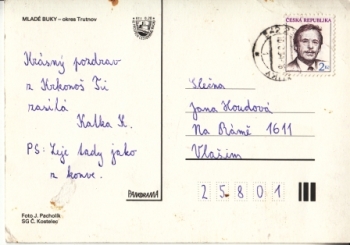 MLADÉ BUKY – okres Trutnov
Krásný pozdrav
z Krkonoš Ti
zasílá
Katka K.
PS: Leje tady jako
z konve.
Foto J. Pacholík
SG Č. Kostelec
PANORAMA
ČESKÁ REPUBLIKA
2 Kč
Slečna
Jana Houdová
Na Rámě 1611
Vlašim
25801